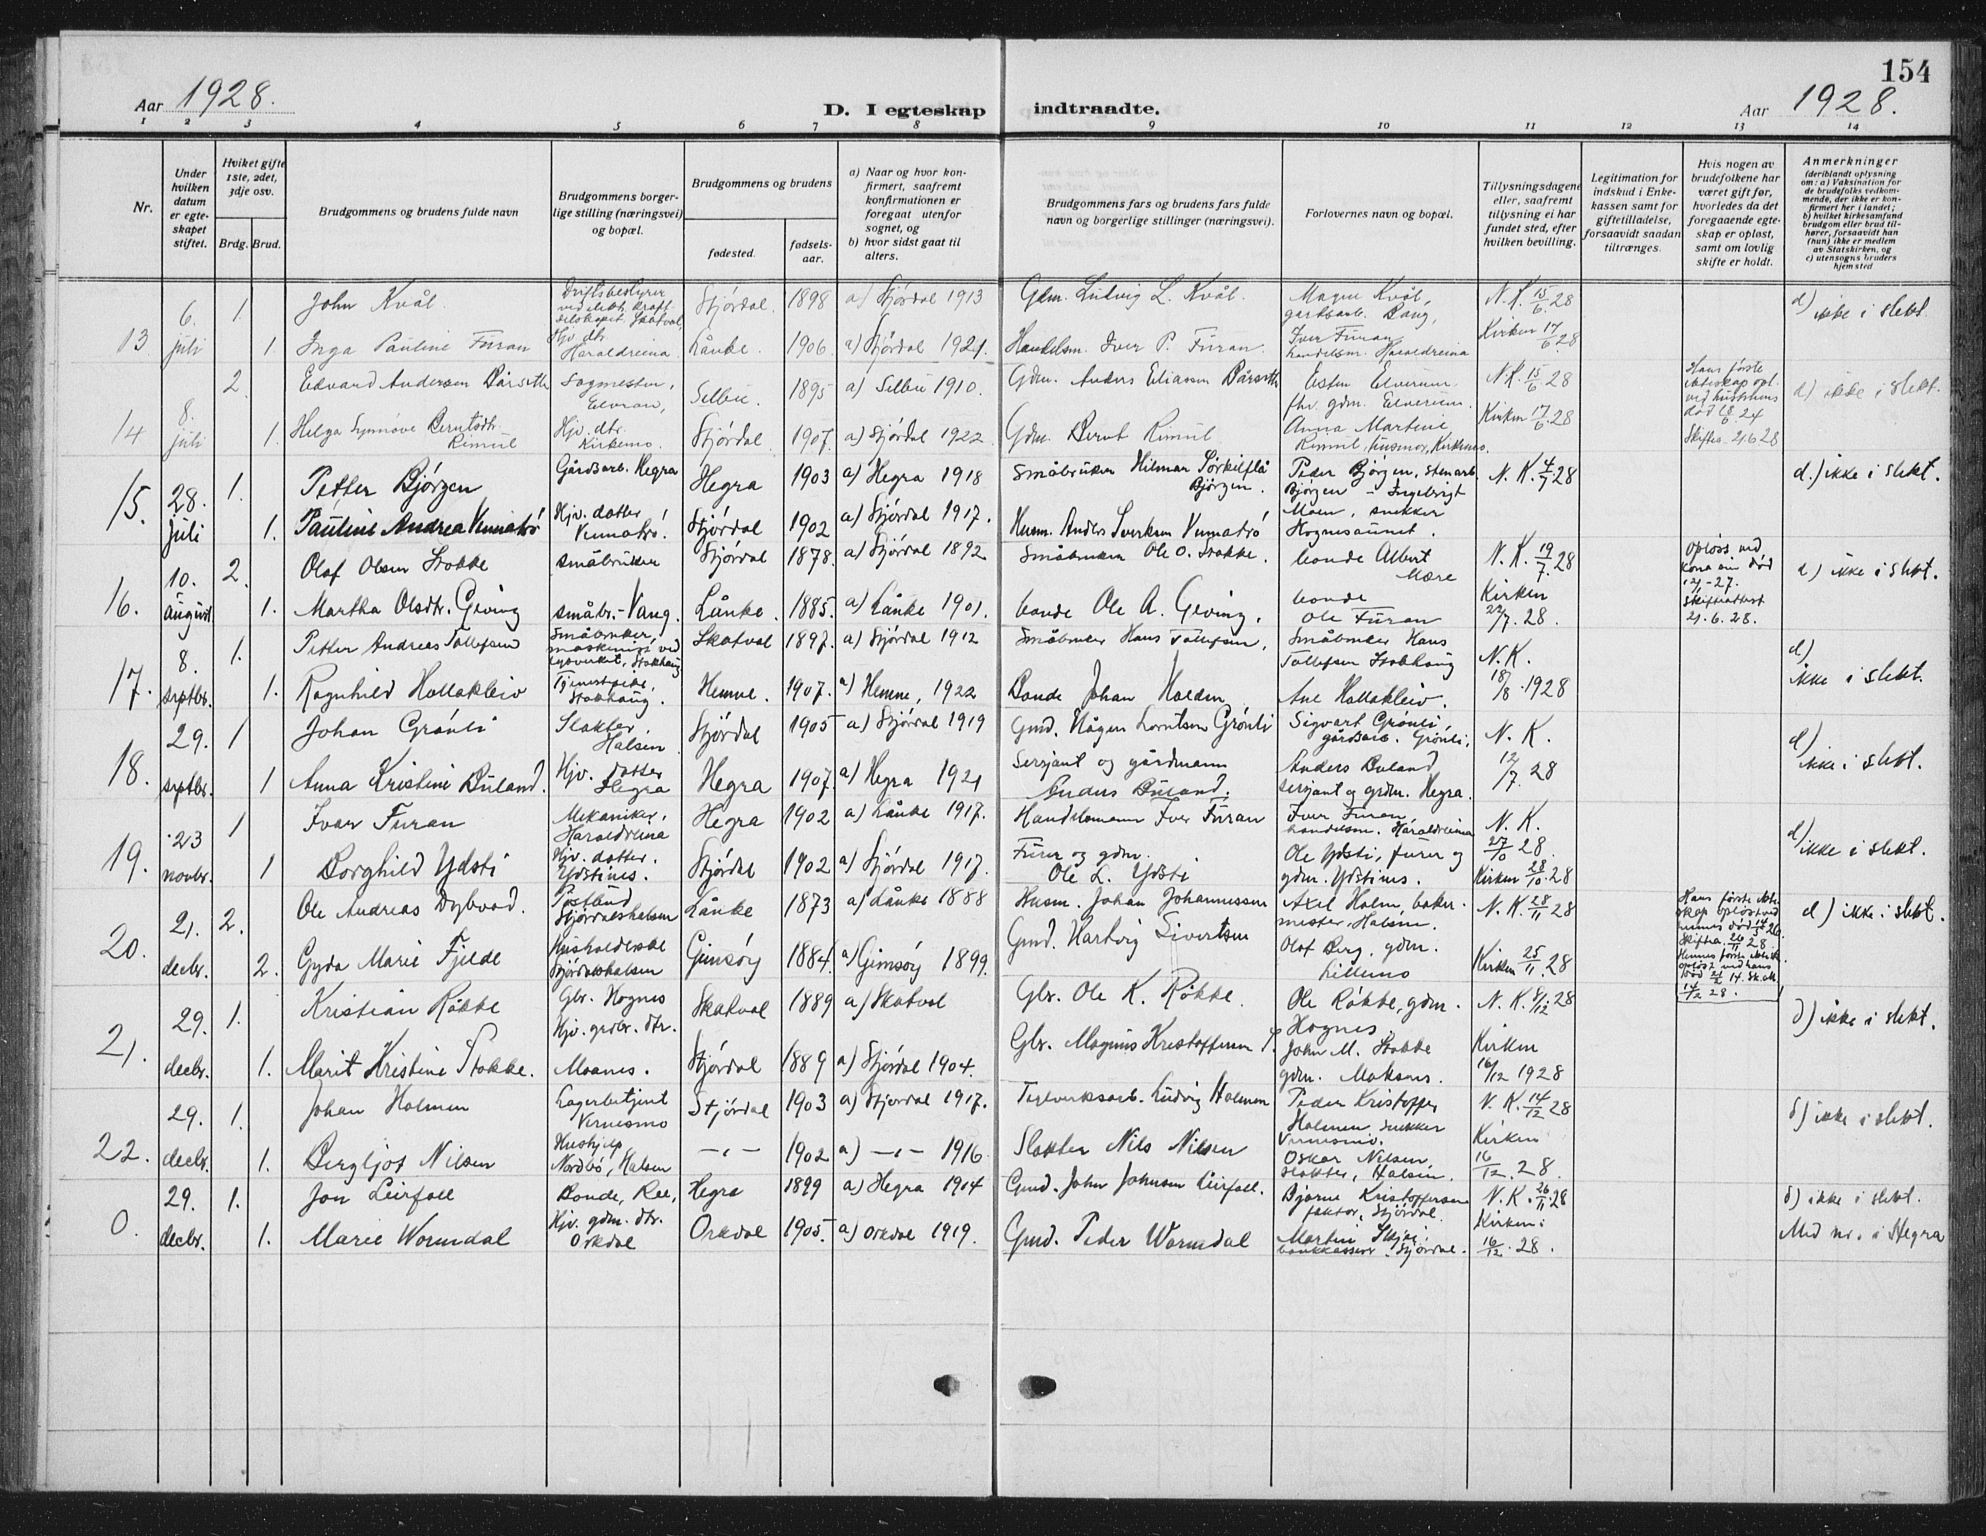 154
Aar 1928.
D. I egteskap indtraadte.
Aar 1928.
1 2 3 4 5 6 7 8 9 10 11 12 13 14
Nr.
Under hvilken datum er egteskapet stiftet.
Hvilket gifte 1ste, 2det, 3dje osv.
Brdg. Brud.
Brudgommens og brudens fulde navn
Brudgommens borgerlige stilling (næringsvei) og bopæl.
Brudgommens og brudens
fødested.
fødselsaar.
a) Naar og hvor konfirmert, saafremt konfirmationen er foregaat utenfor sognet, og
b) hvor sidst gaat til alters.
Brudgommens fars og brudens fars fulde navn og borgerlige stillinger (næringsvei).
Forlovernes navn og bopæl.
Tillysningsdagene eller, saafremt tillysning ei har fundet sted, efter hvilken bevilling.
Legitimation for indskud i Enkekassen samt for giftetilladelse, forsaavidt saadan tiltrænges.
Hvis nogen av brudefolkene har været gift før, hvorledes da det foregaaende egteskap er opløst, samt om lovlig skifte er holdt.
Anmerkninger
(deriblandt oplysning om: a) Vaksination for de brudefolks vedkommende, der ikke er konfirmert her i landet; b) hvilket kirkesamfund brudgom eller brud tilhører, forsaavidt han (hun) ikke er medlem av Statskirken, og c) utensogns bruders hjemsted
13 6. juli 1 John Kvål. Driftsbestyrer ved elektr. kraft Skatval, Stjórdal. 1898 a) Stjórdal 1913 Gdm. Ludvig L. Kvål. Magne Kvål, gardbarb. Vang, N.K. 15/6 28 d) ikke i slekt.
1. Inga Pauline Furan Hjv. dtr. Haraldreina Lånke. 1906 a) Stjórdal 1921. Handelsm. Iver P. Furan. Iver Furan handelsm. Haraldreina Kirken 17/6 28
14 8. juli 2 Edvard Andersen Bårseth Sagmester, Elvran, Selbu. 1895 a) Selbu 1910. Gdm. Anders Eliassen Bårseth Esten Elverum fhv. gdm. Elverum. N.K. 15/6 28 Hans første ekteskap opl. ved hustruens død 24 Skiftea. 21 6 28 d) ikke i slekt.
1. Helga Synnøve Berntsdtr. Rimul Hjv. dtr. Kirkemo. Stjórdal 1907. a) Stjórdal 1922. Gdm. Bernt Rimul Anna Martine Rimul, husmor, Kirkemo. Kirken 17/6 28
15. 28. juli 1. Petter Bjórgen Gårdsarb. Hegra Hegra 1903 a) Hegra 1918 Småbruker Hilmar Bjórgen. Peder Bjórgen, stenarb. Bjórgen - Ingebrigt N.K. 4/7 28 d.) ikke i slekt.
1. Pauline Andrea Vinnatró Hjv. datter Vennatró. Stjórdal 1902 a) Stjórdal 1917. Husm. Anders Vennatró Moen, snekker Hognesaunet.
16. 10. august 2. Olaf Olsen Stokke småbruker Stjórdal 1878. a) Stjórdal 1892 Småbruker Ole O. Stokke. bonde Albert Mære N.K. 19/7 28 Opløs. ved kona sin død -27. Skifteattest 21. 6. 28. d) ikke i slekt.
1. Martha Olsdtr. Geving småbr.- Vang. Lånke. 1885. a) Lånke 1901. bonde Ole A. Geving. bonde Ole Furan Kirken 22/7. 28.
17. 8. septbr. 1. Petter Andreas Tollefsen Småbruker, maskinist ved lysverket, Stokhaug Skatval 1897. a) Stjórdal 1912 Småbruker Hans Tollefsen, Småbruker Hans Tollefsen Stokhaug N.K. d) ikke i slekt.
1. Ragnhild Hollakleiv Tjenestpike, Stokhaug. Hemne. 1907. a) Hemne, 1922 Bonde Johan Ane Hollakleiv. 18/8. 1928
18. 29. septbr. 1 Johan Grónli Slakter Halsen Stjórdal 1905 a) Stjórdal 1919 Gmd. Hågen Lorntsen Grónli Sigvart Grónli, gårdsarb. Grónli, N.K. d) ikke i slekt.
1 Anna Kristine Buland. Hjv. datter Hegra Hegra 1907. a) Hegra 1921 Sersjant og gårdmann Anders Buland. Anders Buland sersjant og grdm. Hegra. 12/7. 28
19. 23 novbr. 1 Ivar Furan Mekaniker, Haraldreina Hegra 1902 a) Lånke 1917. Handelsmann Iver Furan Iver Furan, handelsm. Haraldreina N.K. 27/10 28. d) ikke i slekt.
1 Borghild Ydsti Hjv. datter. Ydstines. Stjórdal 1902 a) Stjórdal 1917. Furer og gdm. Ole L. Ydsti Ole Ydsti, furer og gdm. Ydstines. Kirken 28/10 28
20. 21. decbr. 2. Ole Andreas Dybvad. Postbud Stjórdalshalsen Lånke 1873 a) Lånke 1888 Husm. Johan Johannessen Axel Holm, bakermester, Halsen. N.K. 28/11 28 Hans første ekteskap opløst ved hennes død 26 Skiftea. 26/11 28. Hennes første ekteskap opløst ved hans død 14 14/12 28. d) ikke i slekt.
2. Gyda Marie Fjelde Husholderske Stjórdalshalsen Gimsóy 1884. a) Gimsóy 1899. Gmd. Hartvig Sivertsen Olof Berg, gdm. Lillemo Kirken 25/11. 28
21. 29. decbr. 1. Kristian Rókke Gbr. Hognes Skatval 1889 a) Skatval Gbr. Ole K. Rókke. Ole Rókke, gdm. Hognes. N.K. 8/12 28 d) ikke i slekt.
1. Marit Kristine Stokke. Hjv. grdbr. dtr. Moanes. Stjórdal 1889 a) Stjórdal 1904. Gbr. Magnus Kristoffersen S. John M. Stokke gdm. Moksnes. Kirken 16/12 1928
22. 29. decbr. 1. Johan Holmen Lagerbetjent Vernesmo Stjórdal 1903 a) Stjórdal 1917. Teglverksarb. Ludvig Holmen Peder Kristoffer Holmen, snekker Vernesmo. N.K. 14/12 28 d) ikke i slekt.
1. Bergljot Nilsen Hushjelp Nordbó, Halsen -„- 1902 a) -„- 1916 Slakter Nils Nilsen Oskar Nilsen, slakter, Halsen. Kirken 16/12. 28.
0. 29. decbr. 1. Jon Leirfall Bonde, Ree, Hegra 1899 a) Hegra 1914 Gmd. John Johnsen Leirfall. Bjarne Kristoffersen faktor, Stjórdal. N.K. 26/11 28 d) ikke i slekt.
1. Marie Wormdal Hjv. gdm. dtr. Orkdal Orkdal 1905. a) Orkdal 1919. Gmd. Peder Wormdal Martin Skjei, bankkasserer, Stjórdal. Kirken: 16/12. 28. Med nr. i Hegra